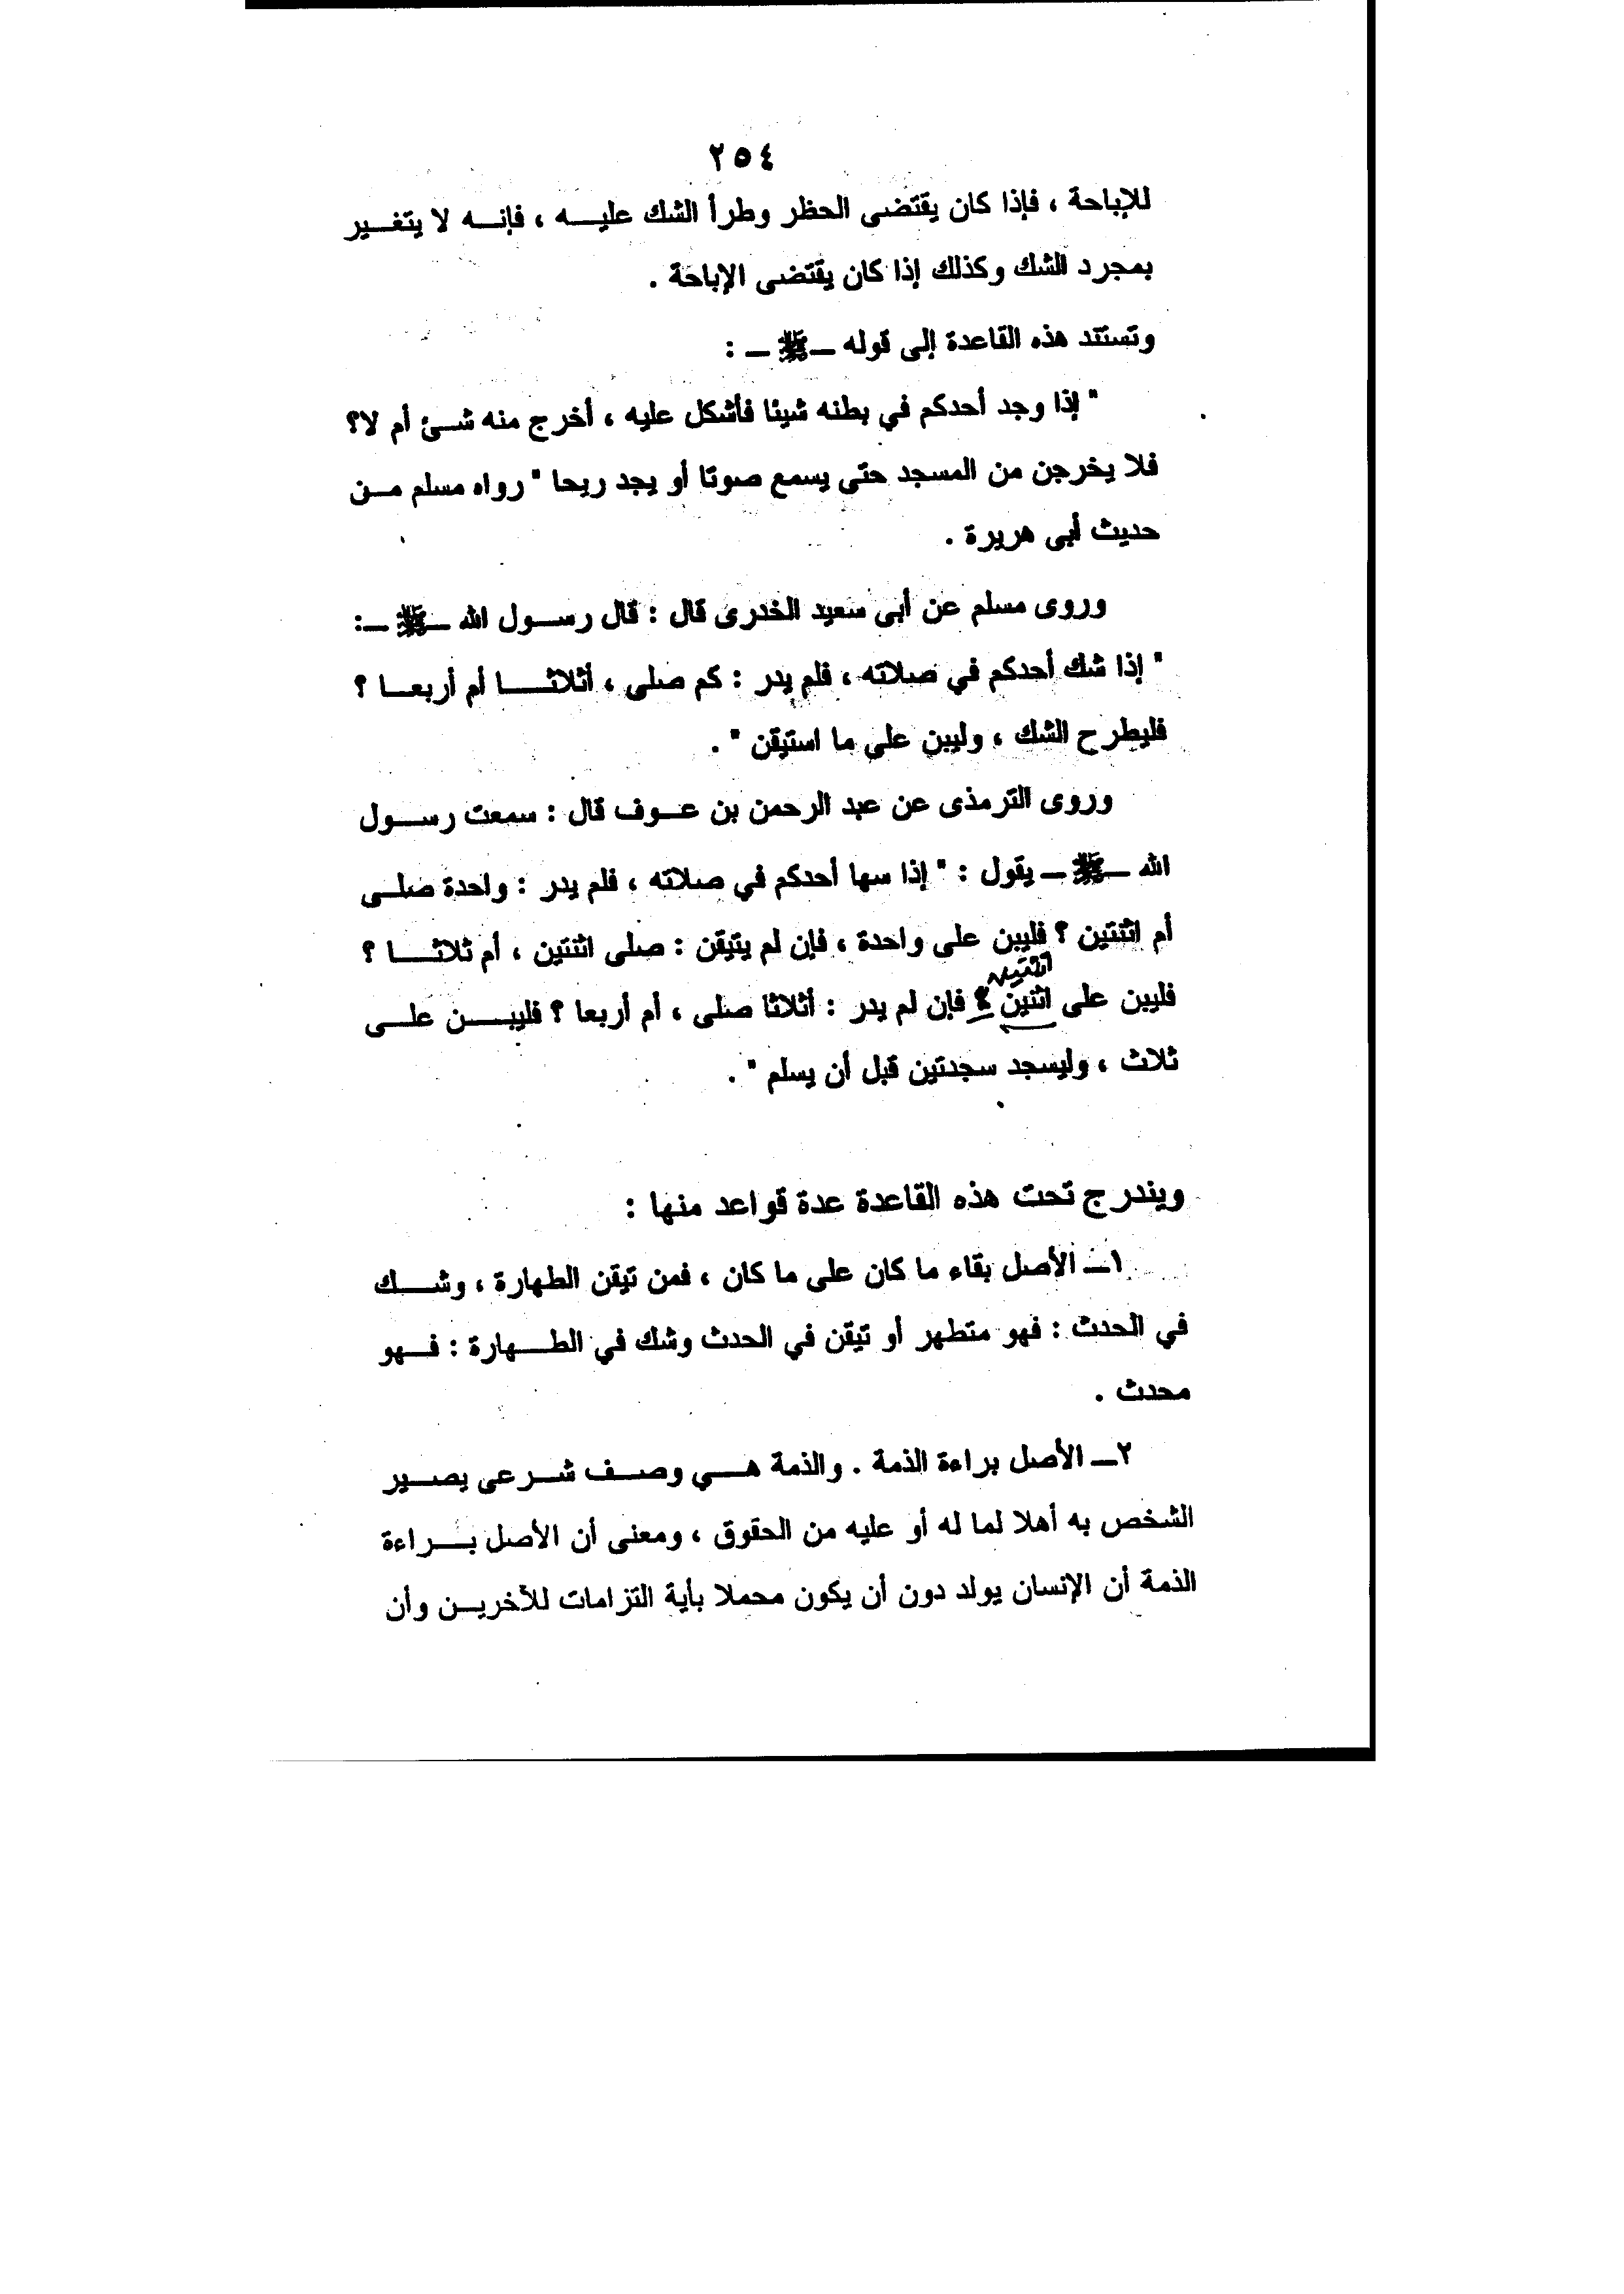 ٢٥٤
للإباحة ، فإذا كان يقتضى الحظر وطرأ الشك عليه ، فإنه لا يتغير
بمجرد الشك وكذلك إذا كان يقتضى الإباحة .
وتستند هذه القاعدة إلى قوله ــ ﷺ ــ :
" إذا وجد أحدكم في بطنه شيئا فأشكل عليه ، أخرج منه شئ أم لا؟
فلا يخرجن من المسجد حتى يسمع صوتا أو يجد ريحا " رواه مسلم من
حديث أبى هريرة .
وروى مسلم عن أبى سعيد الخدرى قال : قال رسول الله ــ ﷺ ــ:
" إذا شك أحدكم في صلاته ، فلم يدر : كم صلى ، أثلاثا أم أربعا ؟
فليطرح الشك ، وليبن على ما استيقن " .
وروى الترمذى عن عبد الرحمن بن عوف قال : سمعت رسول
الله ــ ﷺ ــ يقول : " إذا سها أحدكم في صلاته ، فلم يدر : واحدة صلى
أم اثنتين ؟ فليبن على واحدة ، فإن لم يتيقن : صلى اثنتين ، أم ثلاثا ؟
اثنتين
فليبن على اثنين ؟ فإن لم يدر : أثلاثا صلى ، أم أربعا ؟ فليبن على
ثلاث ، وليسجد سجدتين قبل أن يسلم " .
ويندرج تحت هذه القاعدة عدة قواعد منها :
١ــ الأصل بقاء ما كان على ما كان ، فمن تيقن الطهارة ، وشك
في الحدث : فهو متطهر أو تيقن في الحدث وشك في الطهارة : فهو
محدث .
٢ــ الأصل براءة الذمة . والذمة هي وصف شرعى يصير
الشخص به أهلا لما له أو عليه من الحقوق ، ومعنى أن الأصل براءة
الذمة أن الإنسان يولد دون أن يكون محملا بأية التزامات للآخرين وأن